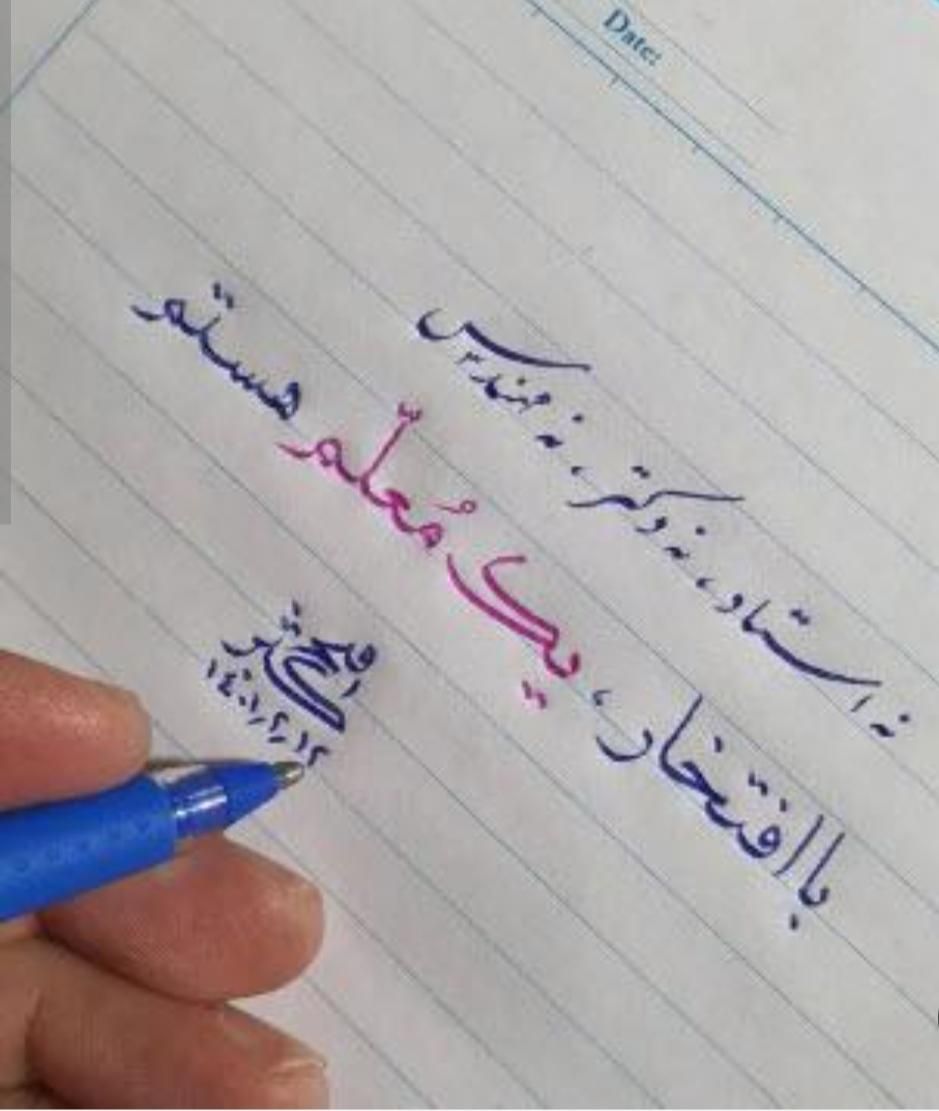 Date:
نه استاد، نه دکتر، نه مهندس
با افتخار، یک مُعلّم هستم
۱۴۰۱٫۲٫۱۲